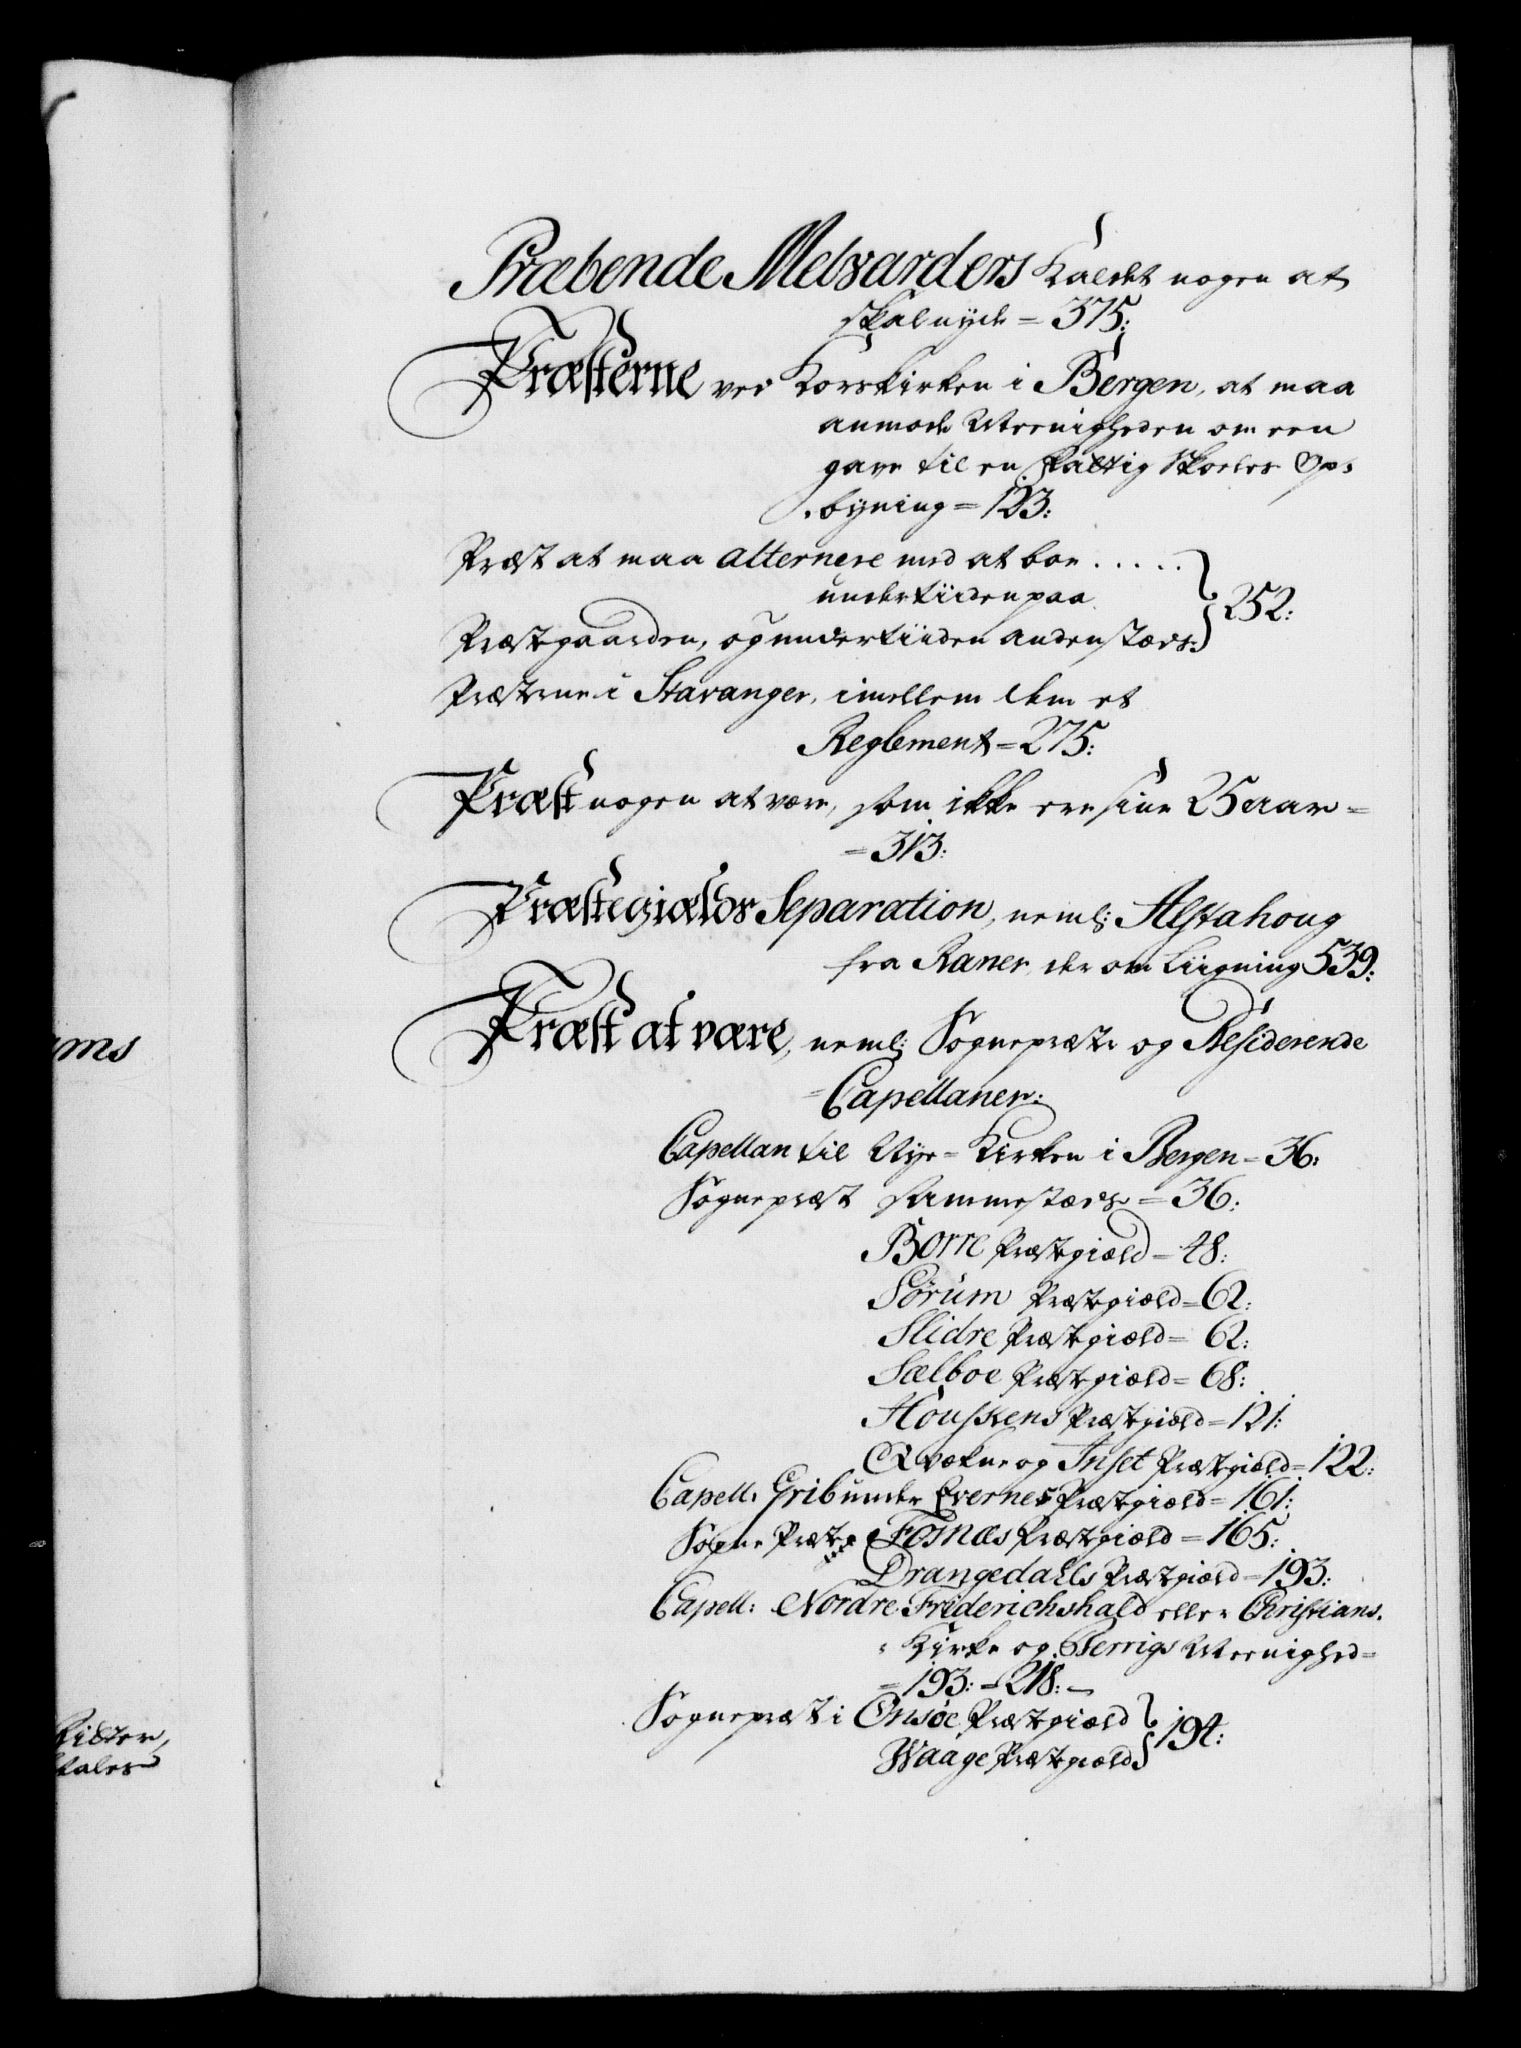 Præbende Melvarders Kaldet nogen at
skal nyde = 375:
Præsterne ved Korskirken i Bergen, at maa
anmode Meenigheden om een
gave til en fattig Skoeles Op-
bygning = 123:
Præst at maa alternere med at boe . . . . .
undertiiden paa } 252:
Præstegaarden, og undertiiden andenstæds:
Præsterne i Stavanger, imellem dem et
Reglement = 275:
Præst nogen at være, som ikke ere sine 25 aar =
= 313:
Præstegiælds Separation, neml: Alstahoug
fra Raner, der om Liigning 539:
Præst at være, neml: Sognepræste og Residerende
Capellaner:
Capellan til Nye = Kirken i Bergen = 36:
Sognepræst sammestæds = 36:
Borre Præstegiæld = 48:
Sørum Præstegiæld = 62:
Slidre Præstegiæld = 62:
Sælboe Præstegiæld = 68:
Houskens Præstegiæld = 121:
Qvækne og Inset Præstegiæld = 122:
Capell: Grib under Evernes Præstegiæld = 161:
Sogne Præst Fosnæs Præstegiæld = 165:
Drangedalls Præstegiæld = 193:
Capell: Nordre Friderichshald eller Christians-
Kirke og Berrigs Meenighed =
= 193: = 218: =
Sognepræst i Onsøe Præstegiæld } 194:
Waage Præstegiæld
ums
Ridter,
tales